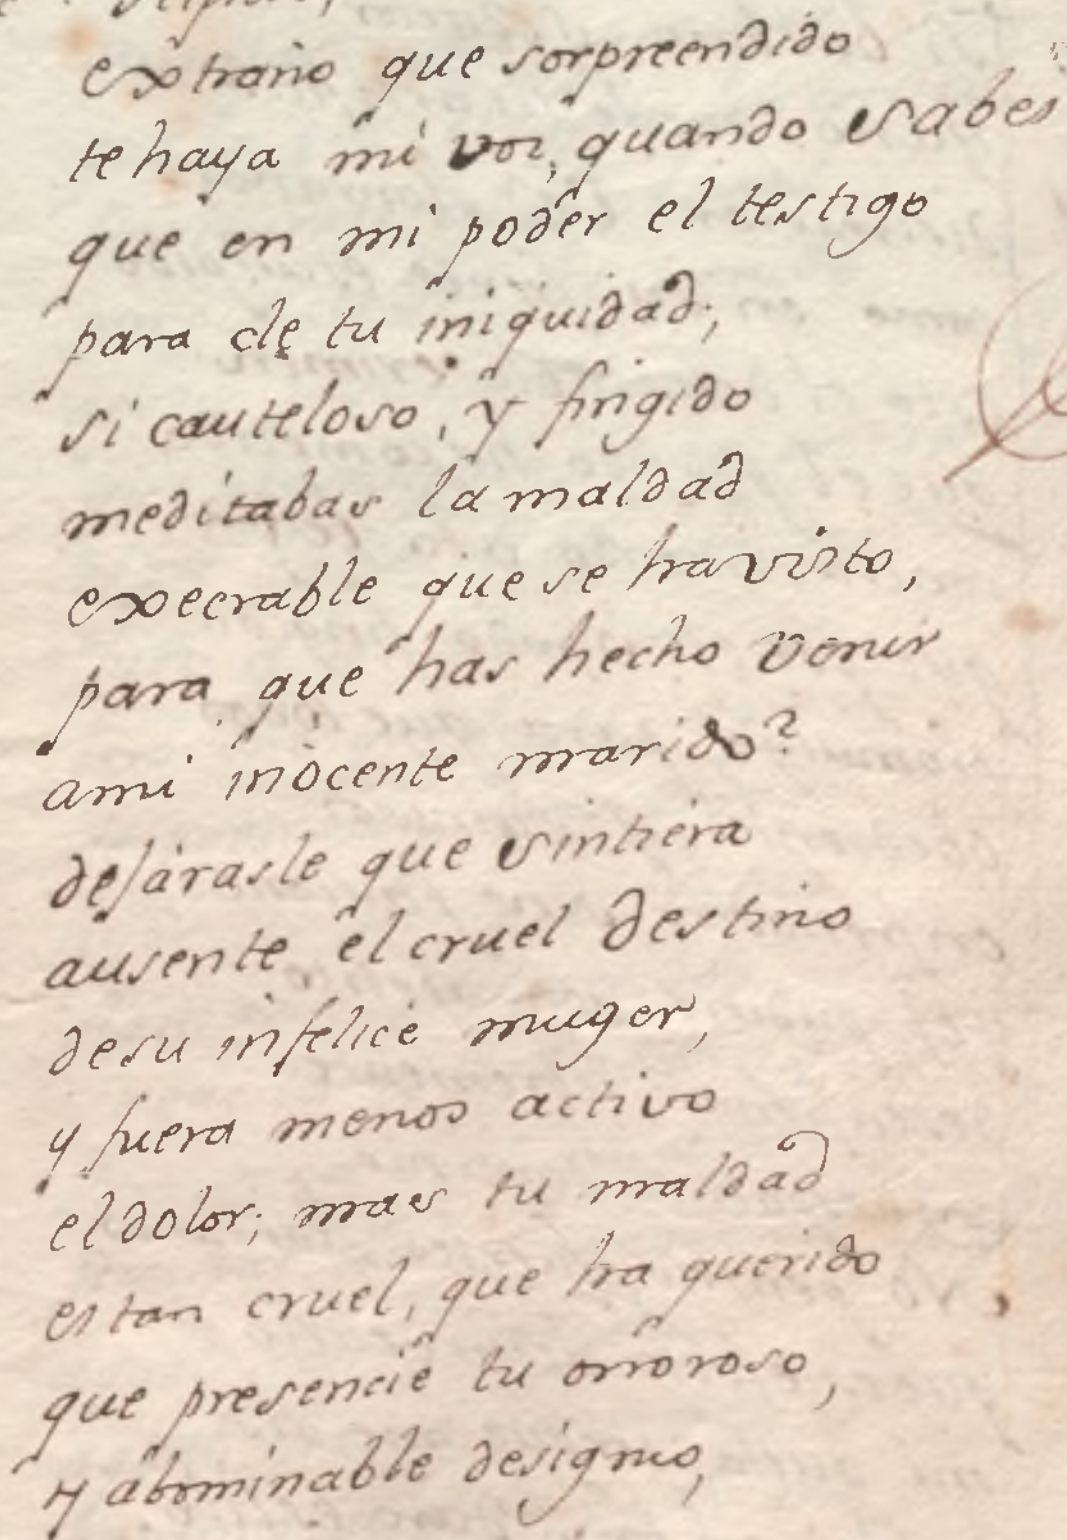 extraño que sorpreendido
te haya mi voz, quando sabes
que en mi poder el testigo
para de tu iniquidad;
si cauteloso, y fingido
meditabas la maldad
execrable que se ha visto,
para que has hecho venir
ami inocente marido?
dejárasle que sintiera
ausente el cruel destino
desu infelice muger,
y fuera menos activo
el dolor; mas tu maldad
es tan cruel, que ha querido
que presencie tu orroroso,
y abominable designio,